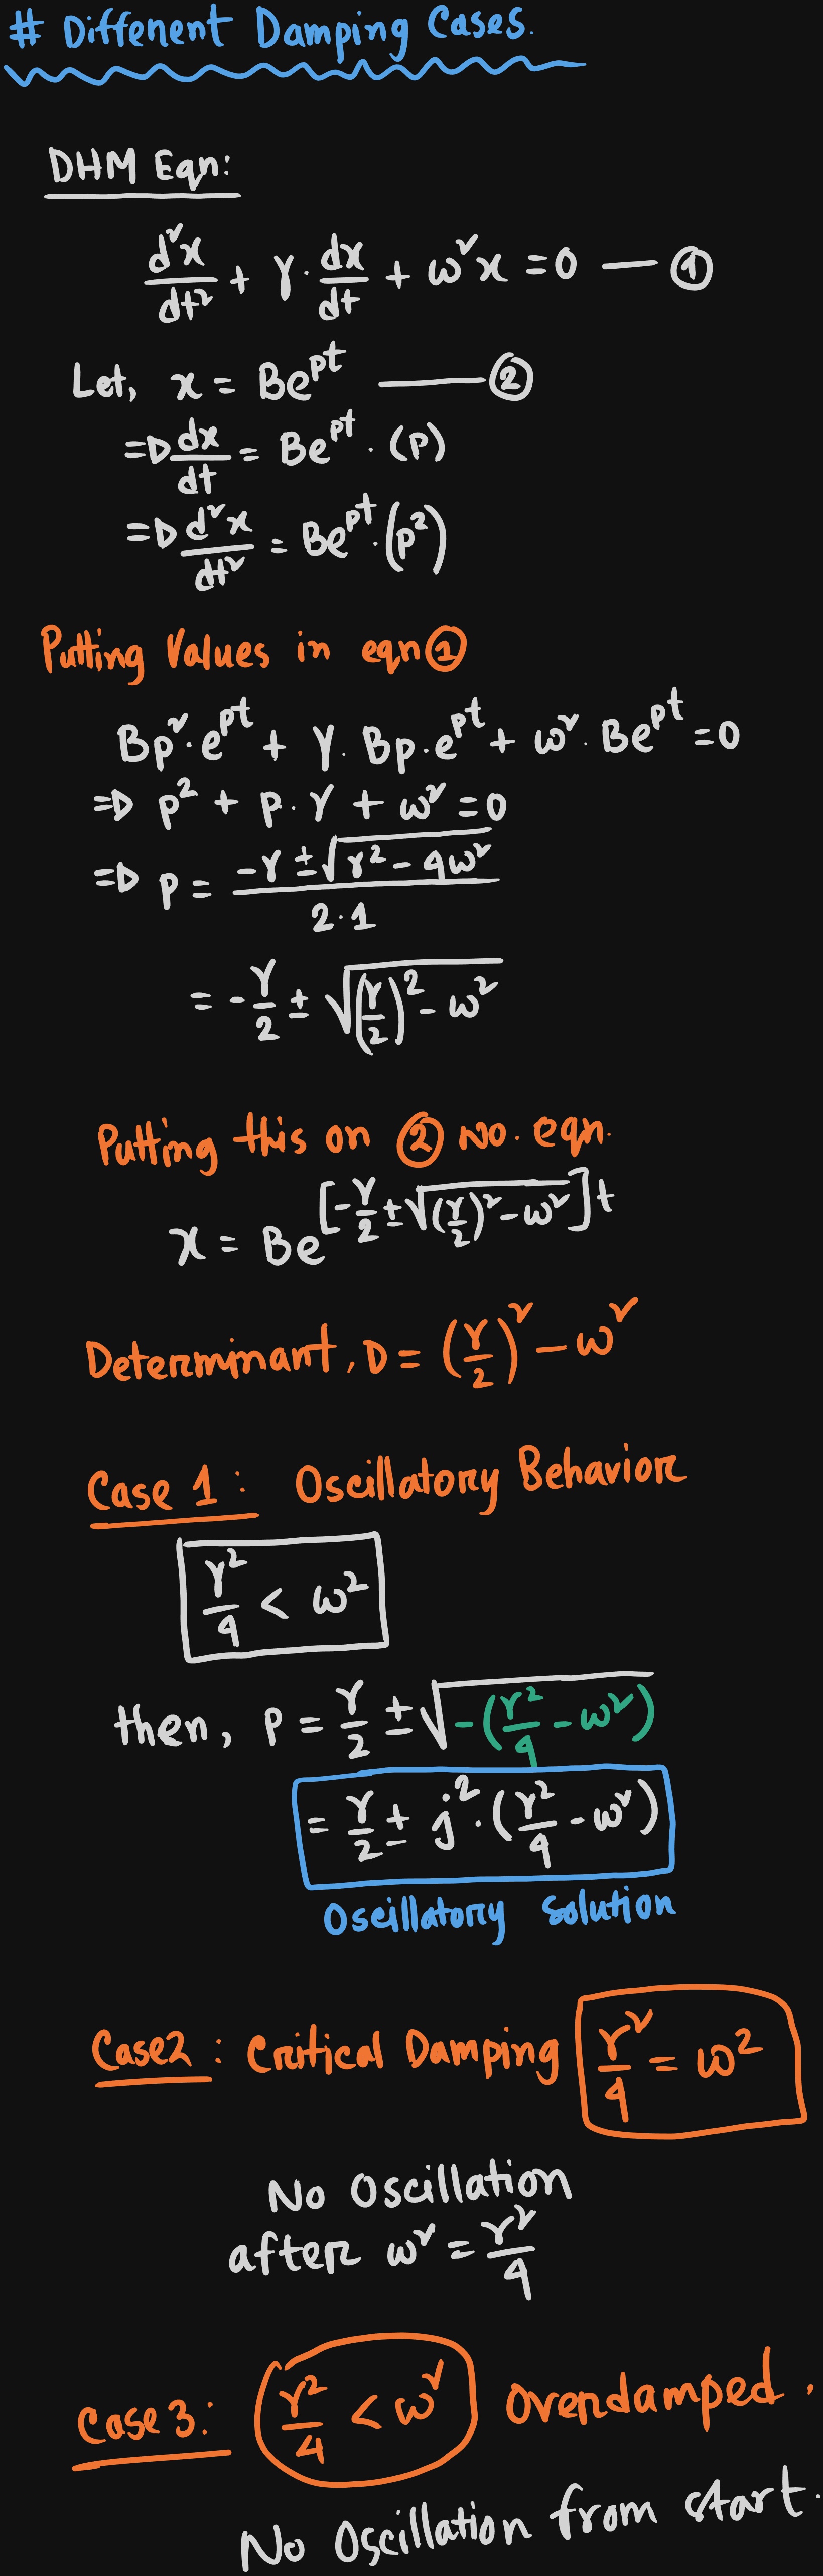 # Different Damping Cases.
DHM Eqn:
d²x/dt² + γ · dx/dt + ω²x = 0 — ①
Let, x = Be^pt — ②
⇒ dx/dt = Be^pt · (p)
⇒ d²x/dt² = Be^pt · (p²)
Putting Values in eqn ①
Bp² · e^pt + γ · Bp · e^pt + ω² · Be^pt = 0
⇒ p² + p · γ + ω² = 0
⇒ p = (-γ ± √(γ² - 4ω²)) / (2 · 1)
= -γ/2 ± √((γ/2)² - ω²)
Putting this on ② No. eqn.
x = Be^[-γ/2 ± √((γ/2)² - ω²)]t
Determinant, D = (γ/2)² - ω²
Case 1: Oscillatory Behavior
γ²/4 < ω²
then, p = γ/2 ± √(-(γ²/4 - ω²))
= γ/2 ± j² · (γ²/4 - ω²)
Oscillatory Solution
Case2: Critical Damping γ²/4 = ω²
No Oscillation
after ω² = γ²/4
Case 3: γ²/4 < ω² Overdamped.
No Oscillation from start.